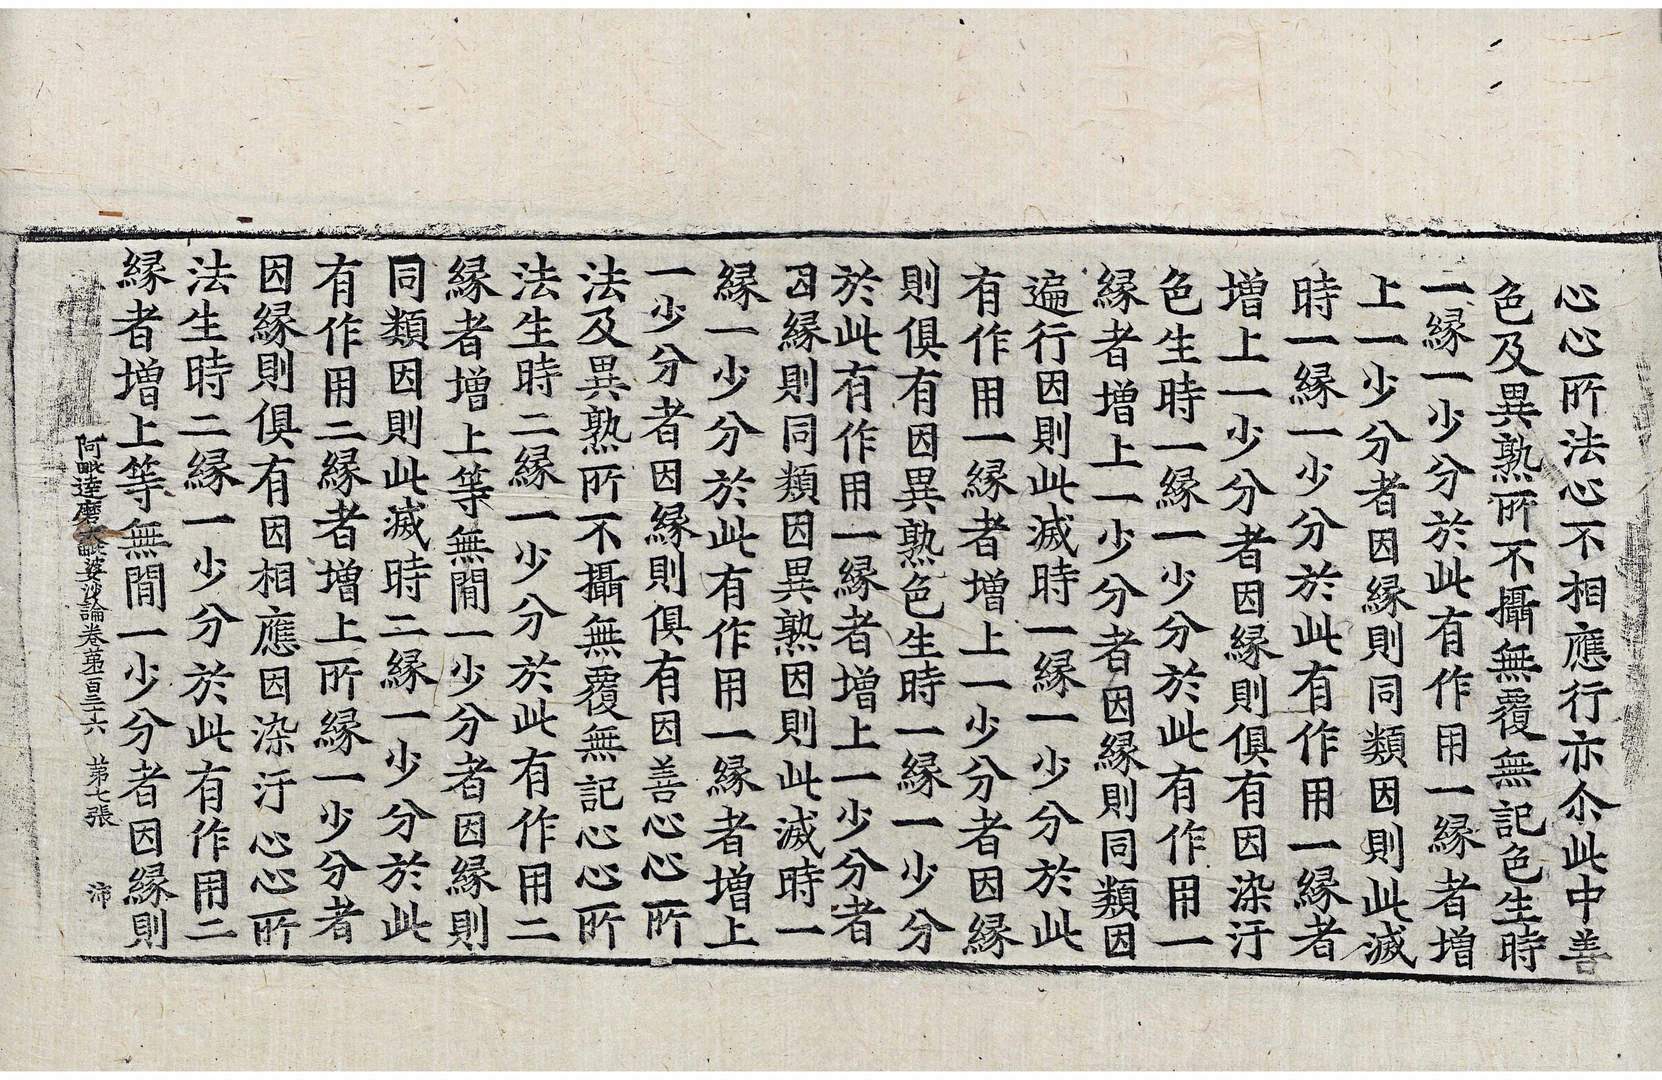 心心所法心不相應行亦尒此中善
色及異熟所不攝無覆無記色生時
一縁一少分於此有作用一縁者增
上一少分者因縁則同類因則此滅
時一縁一少分於此有作用一縁者
增上一少分者因縁則俱有因染汙
色生時一縁一少分於此有作用一
縁者增上一少分者因縁則同類因
遍行因則此滅時一縁一少分於此
有作用一縁者增上一少分者因縁
則俱有因異熟色生時一縁一少分
於此有作用一縁者增上一少分者
因縁則同類因異熟因則此滅時一
縁一少分於此有作用一縁者增上
一少分者因縁則俱有因善心心所
法及異熟所不攝無覆無記心心所
法生時二縁一少分於此有作用二
縁者增上等無閒一少分者因縁則
同類因則此滅時二縁一少分於此
有作用二縁者增上所縁一少分者
因縁則俱有因相應因染汙心心所
法生時二縁一少分於此有作用二
縁者增上等無閒一少分者因縁則
阿毗達磨大毗婆沙論卷第一百三十六 第七張 沛